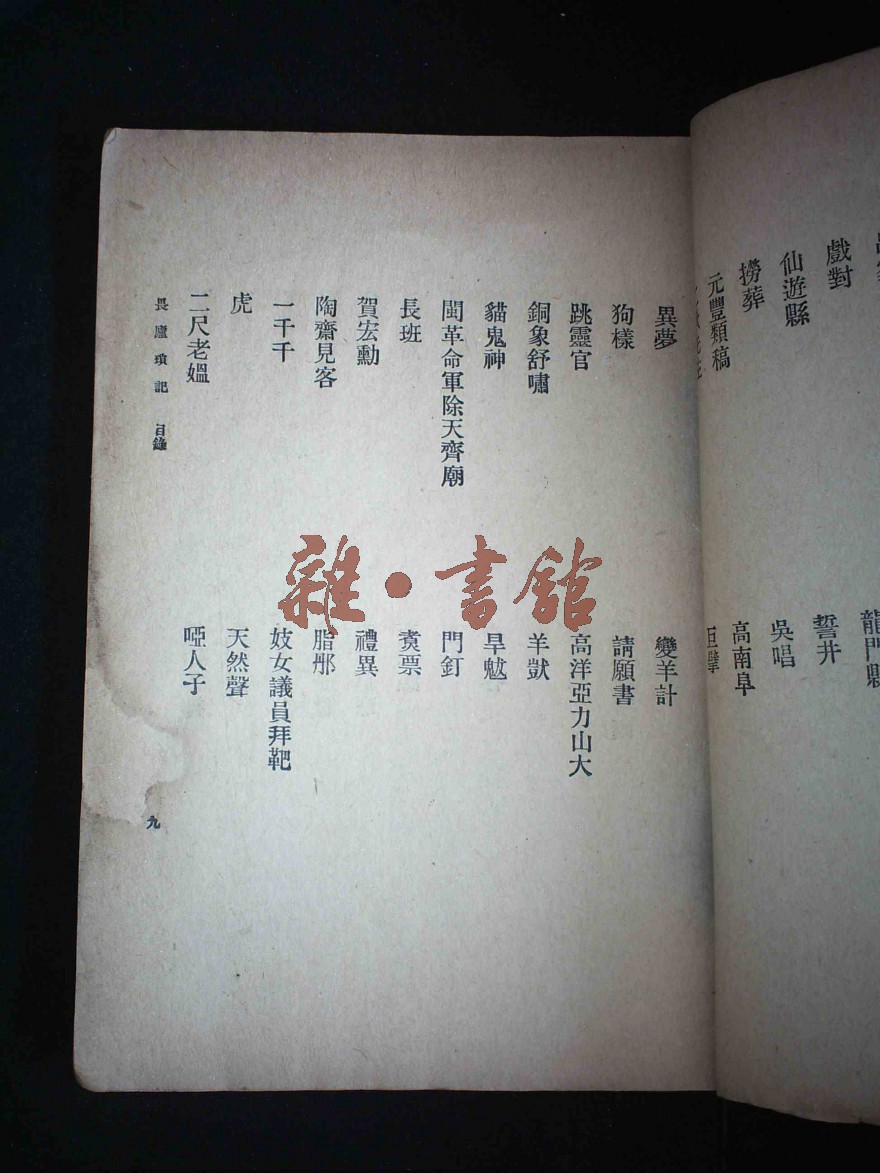 龍門縣
戲對
誓井
仙遊縣
吳唱
撈葬
高南阜
元豐類稿
巨擘
異夢
變羊計
狗樣
請願書
跳靈官
高洋亞力山大
銅象舒嘯
羊獃
貓鬼神
旱魃
閩革命軍除天齊廟
門釘
長班
煑票
賀宏勳
禮異
陶齋見客
脂
一千千
妓女議員拜靶
虎
天然聲
二尺老媼
啞人子
畏廬瑣記 目錄
九
雜·書館